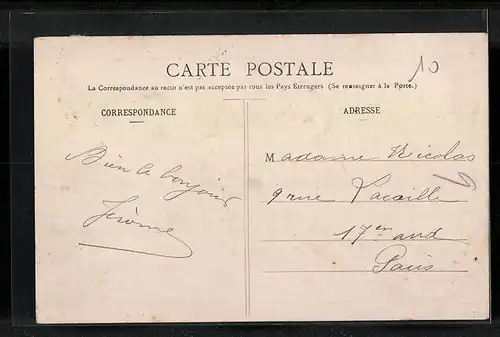 CARTE POSTALE
10
La Correspondance au recto n'est pas acceptée par tous les Pays Etrangers (Se renseigner à la Poste.)
CORRESPONDANCE
ADRESSE
Bien le bonjour
Jérôme
Madame Nicolas
9 rue Lacaille
17em arrd
Paris